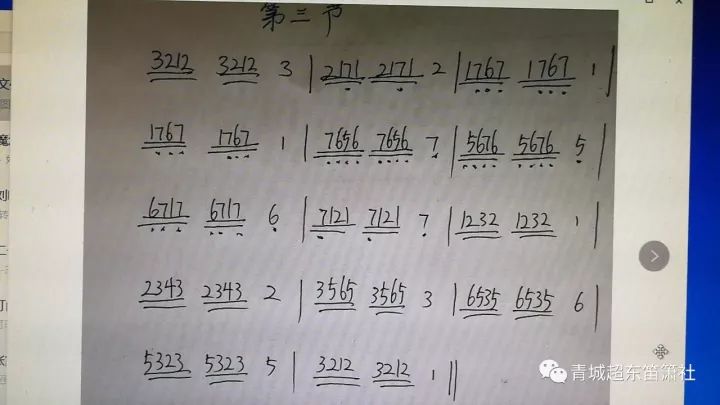 第三节
3212 3212 3 | 2171 2171 2 | 1767 1767 1 |
1767 1767 1 | 7656 7656 7 | 5676 5676 5 |
6717 6717 6 | 7121 7121 7 | 1232 1232 1 |
2343 2343 2 | 3565 3565 3 | 6535 6535 6 |
5323 5323 5 | 3212 3212 1 ||
青城超东笛箫社